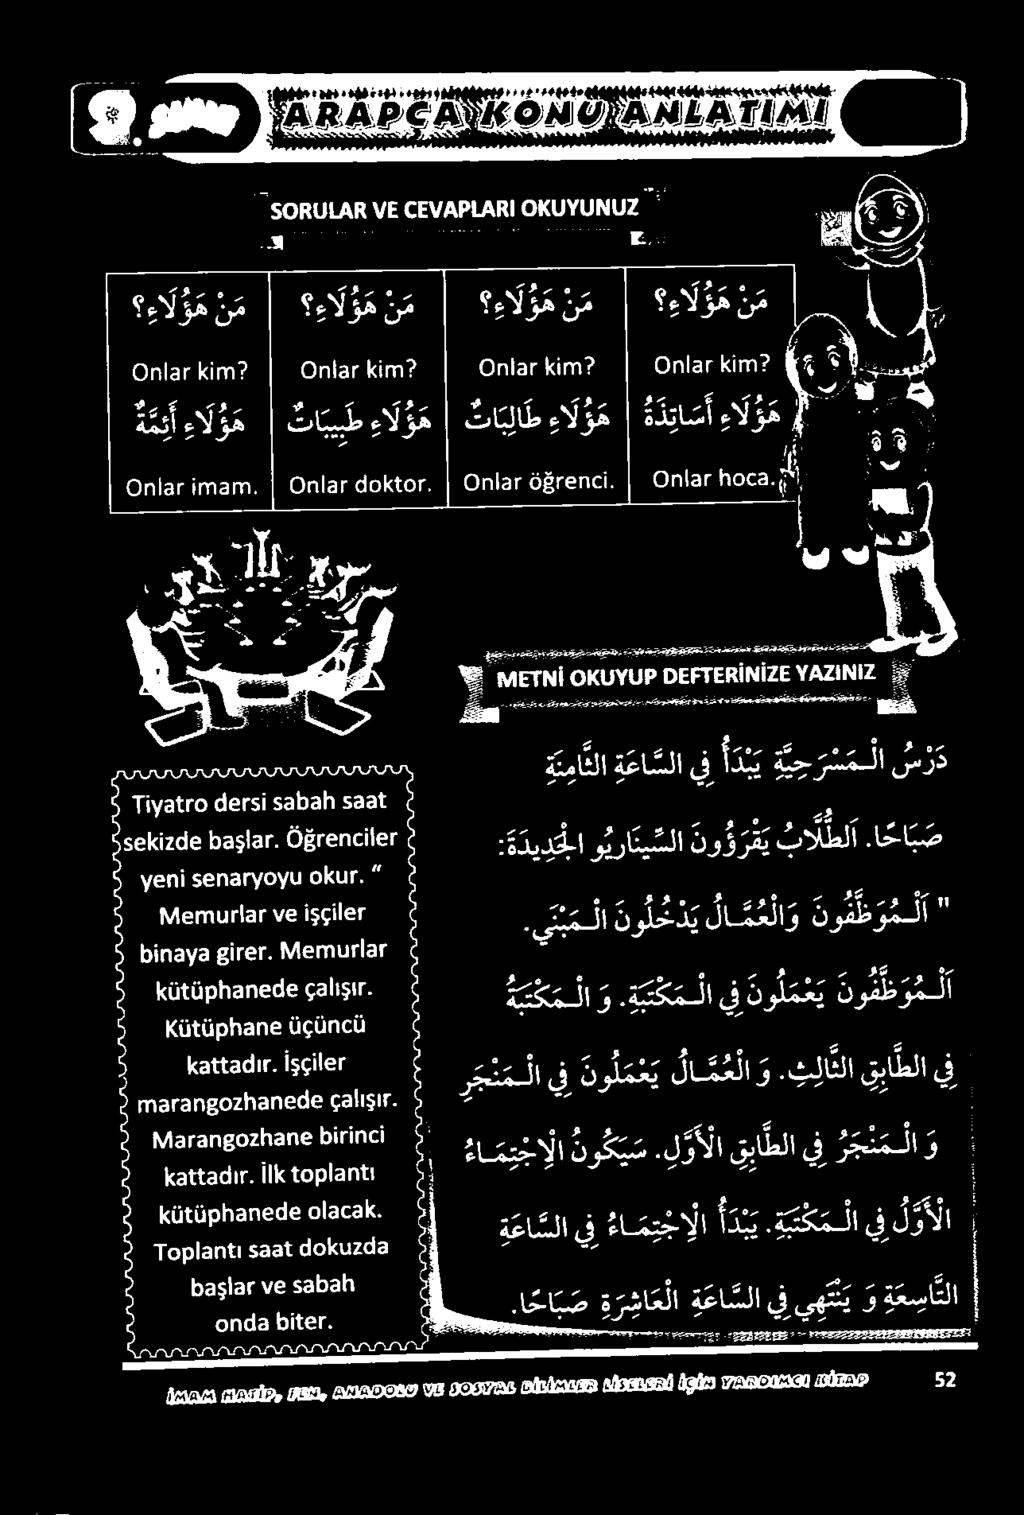 9. SINIF
ARAPÇA KONU ANLATIMI
SORULAR VE CEVAPLARI OKUYUNUZ
مَنْ هَؤُلَاءِ؟ مَنْ هَؤُلَاءِ؟ مَنْ هَؤُلَاءِ؟ مَنْ هَؤُلَاءِ؟
Onlar kim? Onlar kim? Onlar kim? Onlar kim?
هَؤُلَاءِ أَسَاتِذَةُ هَؤُلَاءِ طَالِبَاتٌ هَؤُلَاءِ طَبِيبَاتٌ هَؤُلَاءِ أَئِمَّةٌ
Onlar imam. Onlar doktor. Onlar öğrenci. Onlar hoca.
METNİ OKUYUP DEFTERİNİZE YAZINIZ
دَرْسُ الْمَسْرَحِيَّةِ يَبْدَأُ فِي السَّاعَةِ الثَّامِنَةِ
صَبَاحًا. اَلطُّلَّابُ يَقْرَؤُونَ السِّينَارِيُو الْجَدِيدَةَ:
" اَلْمُوَظَّفُونَ وَالْعُمَّالُ يَدْخُلُونَ الْمَبْنِي.
اَلْمُوَظَّفُونَ يَعْمَلُونَ فِي الْمَكْتَبَةِ. وَ الْمَكْتَبَةُ
فِي الطَّابِقِ الثَّالِثِ. وَ الْعُمَّالُ يَعْمَلُونَ فِي الْمَنْجَرِ
وَ الْمَنْجَرُ فِي الطَّابِقِ الْأَوَّلِ. سَيَكُونُ الْاِجْتِمَاءُ
الْأَوَّلُ فِي الْمَكْتَبَةِ. يَبْدَأُ الْاِجْتِمَاءُ فِي السَّاعَةِ
التَّاسِعَةِ وَ يَنْتَهِي فِي السَّاعَةِ الْعَاشِرَةِ صَبَاحًا.
Tiyatro dersi sabah saat
sekizde başlar. Öğrenciler
yeni senaryoyu okur. "
Memurlar ve işçiler
binaya girer. Memurlar
kütüphanede çalışır.
Kütüphane üçüncü
kattadır. İşçiler
marangozhanede çalışır.
Marangozhane birinci
kattadır. İlk toplantı
kütüphanede olacak.
Toplantı saat dokuzda
başlar ve sabah
onda biter.
İMAM HATİP, FEN, ANADOLU VE SOSYAL BİLİMLER LİSELERİ İÇİN YARDIMCI KİTAP 52